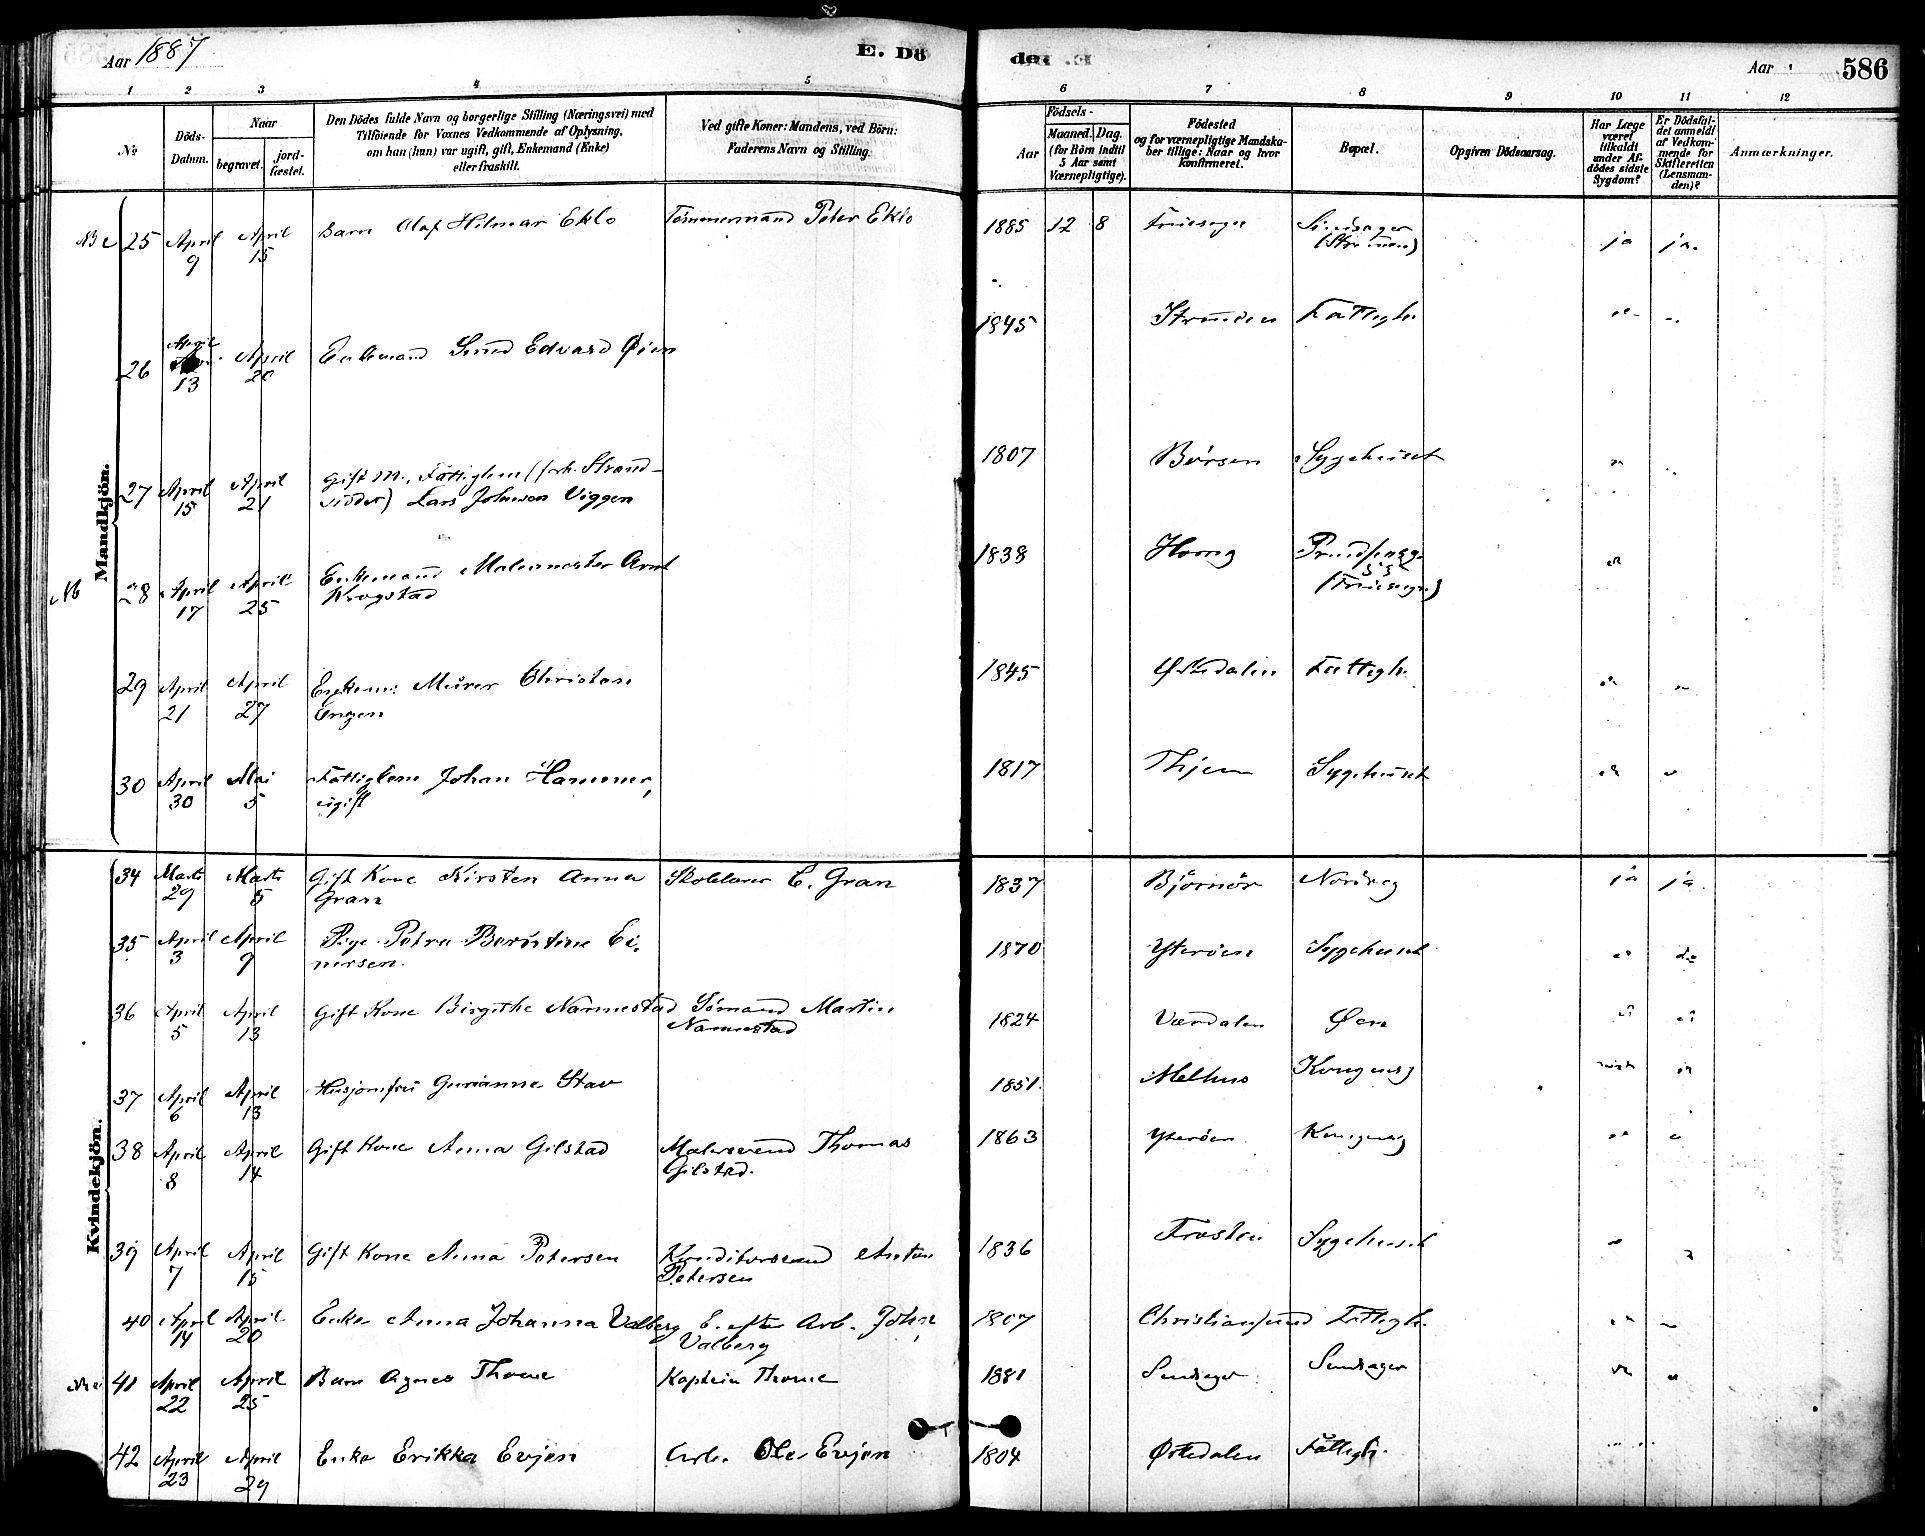 Aar 1887
E. Dö
de
Aar
586
1 2 3 4 5 6 7 8 9 10 11 12
No.
Döds-Datum.
Naar
begravet.
jord-fæstet.
Den Dödes fulde Navn og borgerlige Stilling (Næringsvei) med
Tilföiende for Voxnes Vedkommende af Oplysning,
om han (hun) var ugift, gift, Enkemand (Enke)
eller fraskilt.
Ved gifte Koner: Mandens, ved Börn:
Faderens Navn og Stilling.
Födsels-
Aar
Maaned. Dag.
(for Börn indtil
5 Aar samt
Værnepligtige).
Födested
og for værnepligtige Mandska-
ber tillige: Naar og hvor
konfirmeret.
Bopæl.
Opgiven Dödsaarsag.
Har Læge
været
tilkaldt
under Af-
dödes sidste
Sygdom?
Er Dödsfal-
det anmeldt
af Vedkom-
mende for
Skifteretten
(Lensman-
den)?
Anmærkninger.
Mandkjön.
25 April 9 April 15 Barn Olaf Hilmar Eklo Tømmermand Peter Eklo 1885 12 8 Fruesogn ja ja.
26 April 13 April 20 Enkemand Smed Edvard Øien 1845 Strinden Fattigh.
27 April 15 April 21 Gift M., Fattiglem (forh. Strand-
sidder) Lars Johnsen Viggen 1807 Børsen Sygehuset
28 April 17 April 25 Enkemand Malermester Arnt
Krogstad 1838 (Fruesogn)
29 April 21 April 27 Enkem. Murer Christen
Engen 1845 Ørkedalen Fattigh.
30 April 30 Mai 5 Fattiglem Johan Hammer,
ugift 1817 Sygehuset
Kvindekjön.
34 Marts 29 Marts 5 Gift Kone Kirsten Anna
Gran E. Gran 1837 Bjørnør Nordreg ja ja.
35 April 3 April 9 Pige Petra Berntine Ei-
nersen. 1870 Ytterøen Sygehuset do
36 April 5 April 13 Gift Kone Birgithe Nannestad Sømand Martin
Nannestad 1824 Værdalen Øen
37 April 6 April 13 Husjomfru Gurianna Stav 1851. Melhus Kongensg
38 April 8 April 14 Gift Kone Anna Gilstad Malersvend Thomas
Gilstad. 1863 Ytterøen Kongensg
39 April 7 April 15 Gift Kone Anna Petersen Konditorsvend Anton
Petersen 1836 Frosten Sygehuset
40 April 14 April 20 Enke Anna Johanna Valberg E. efter Arb. John
Valberg 1807 Christiansund Fattigh.
41 April 22 April 25 Barn Agnes Thoue Kaptein Thoue 1881
42 April 23 April 29 Enke Erikka Evjen Arb. Ole Evjen 1804 Ørkedalen Fattigh.